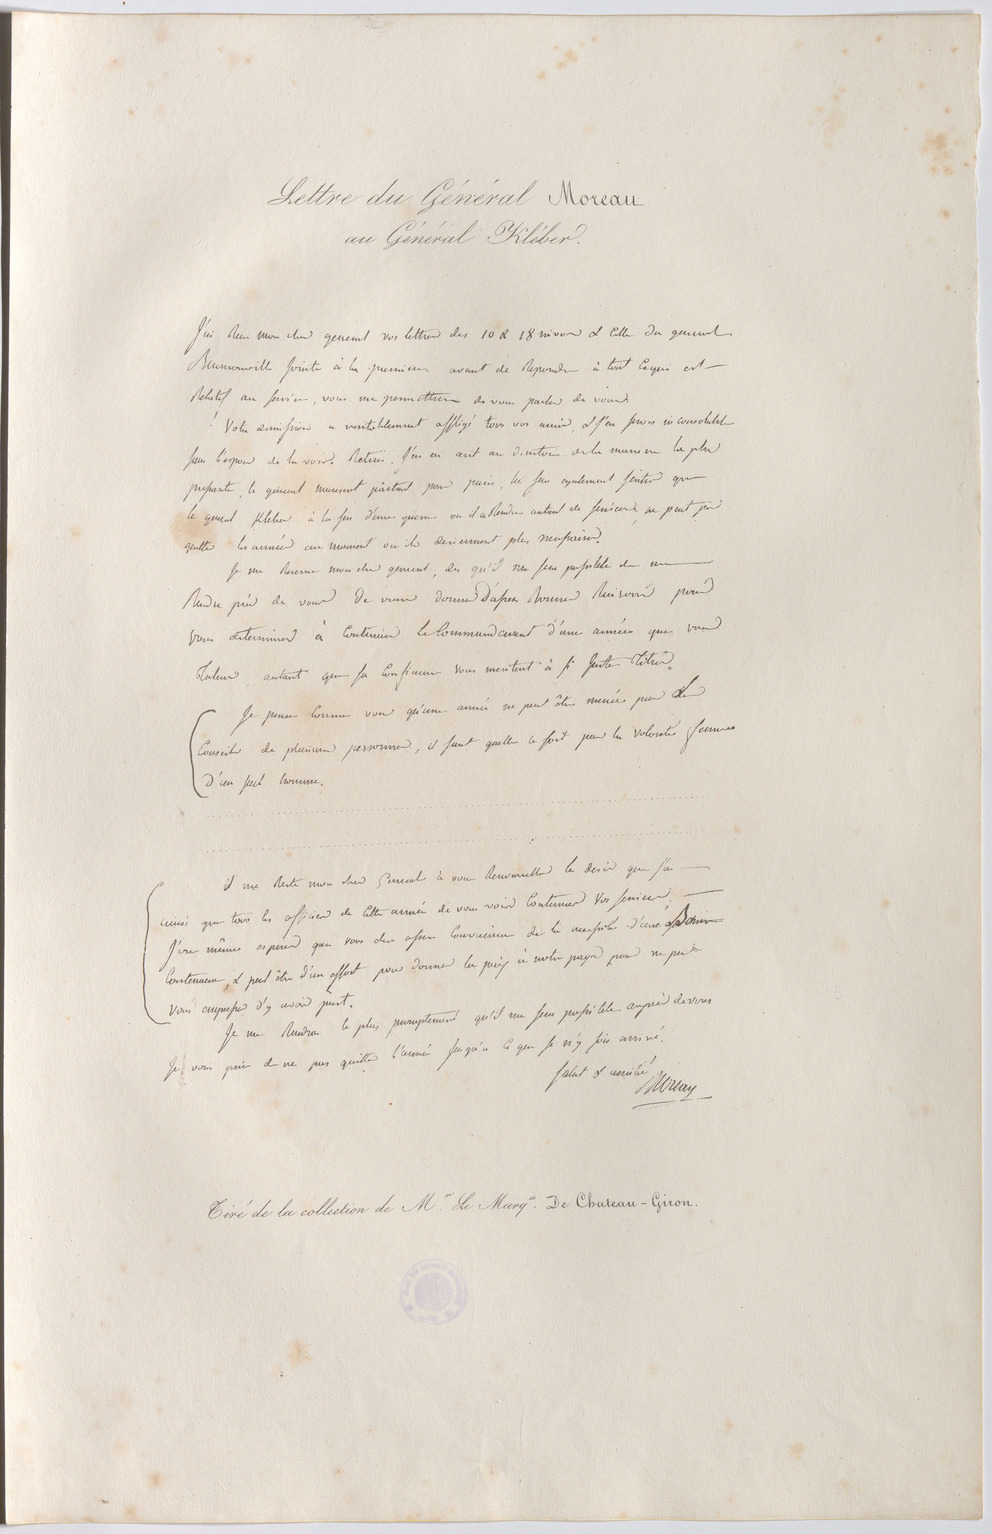 Lettre du Général Moreau
au Général Kléber.
J'ai Reçu mon cher general vos lettres des 10 & 18 nivose & Celle du general
Beurnonville Jointe à la premiere. avant de Repondre à tout Ce qui est
Relatif au service, vous me permettrez de vous parler de vous
Votre demission a veritablement affligé tous vos amis, & J'en serois inconsolable
sans l'espoir de la voir Retirée. J'en ai ecrit au directoire de la maniere la plus
pressante, le general partant pour paris, lui fera egalement sentir que
le general Kleber à la fin d'une guerre ou il a Rendu autant de services, ne peut pas
quitter les armées au moment ou ils deviennent plus necessaires.
Je me Reserve mon cher general, dès qu'il me sera possible de me
Rendre près de vous de vous donner D'assez Bonnes Raisons pour
vous determiner à Continuer Le Commandement d'une armée que vos
Talens autant que sa Confiance vous meritent à si Juste Titre.
Je pense Comme vous qu'une armée ne peut être menée par Le
Conseil de plusieurs personnes, il faut quelle le soit par la volonté ferme
D'un seul homme.
il me Reste mon cher General à vous Renouveller le desir que J'ai
ainsi que tous les officiers de Cette armée de vous voir Continuer Vos services,
J'ose même esperer que vous êtes assez Convaincu de la necessité d'une Bonne
Contenance, & peut être d'un effort pour donner la paix à notre pays pour ne pas
vous empecher d'y avoir part.
Je me Rendrai le plus promptement qu'il me sera possible auprès de vous
Je vous prie de ne pas quitter l'armée Jusqu'a Ce que Je n'y sois arrivé.
salut & amitié
Moreau
Tiré de la collection de M.r Le Marq.is De Chateau-Giron.